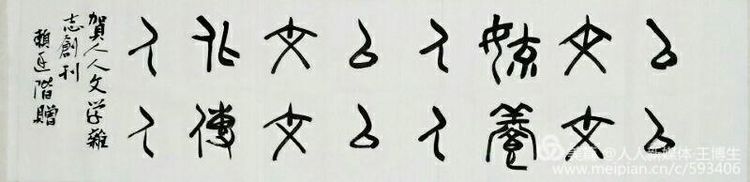 以文人以文人
以文養人以文傳人
賀人人文学雜
志創刊
賴廷階贈
美篇 @人人新媒体·王博生
www.meipian.cn/c/593406